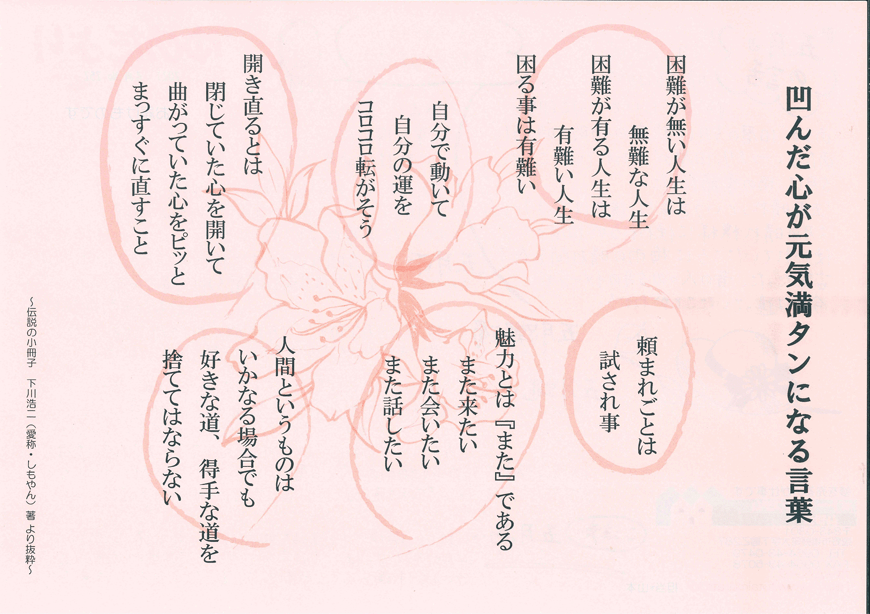 凹んだ心が元気満タンになる言葉
困難が無い人生は
無難な人生
困難が有る人生は
有難い人生
困る事は有難い
自分で動いて
自分の運を
コロコロ転がそう
開き直るとは
閉じていた心を開いて
曲がっていた心をピッと
まっすぐに直すこと
頼まれごとは
試され事
魅力とは『また』である
また来たい
また会いたい
また話したい
人間というものは
いかなる場合でも
好きな道、得手な道を
捨ててはならない
～伝説の小冊子　下川浩二（愛称・しもやん）著 より抜粋～